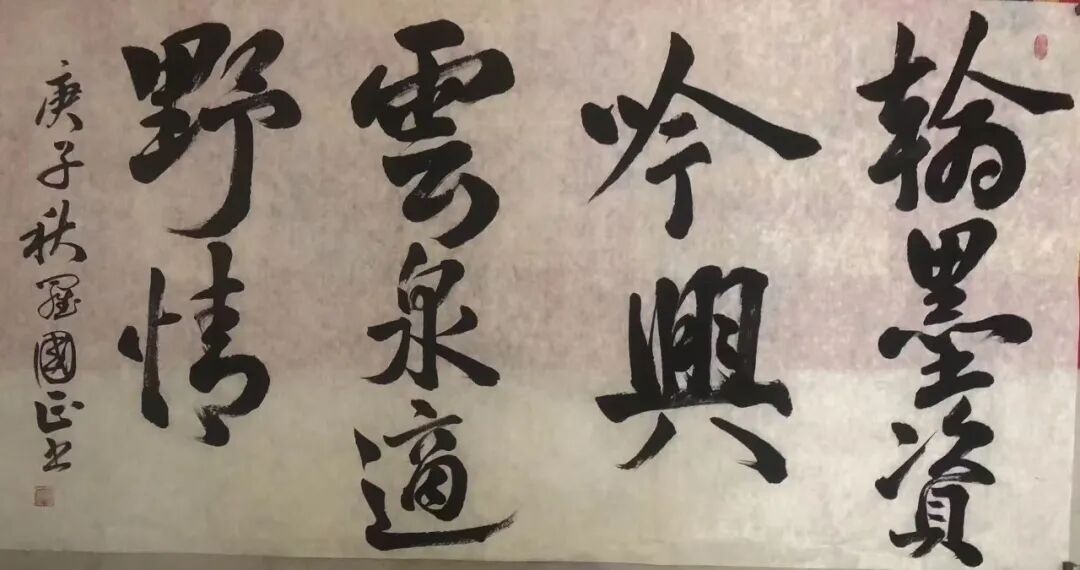 翰墨資
吟興
雲泉適
野情
庚子秋羅國正书